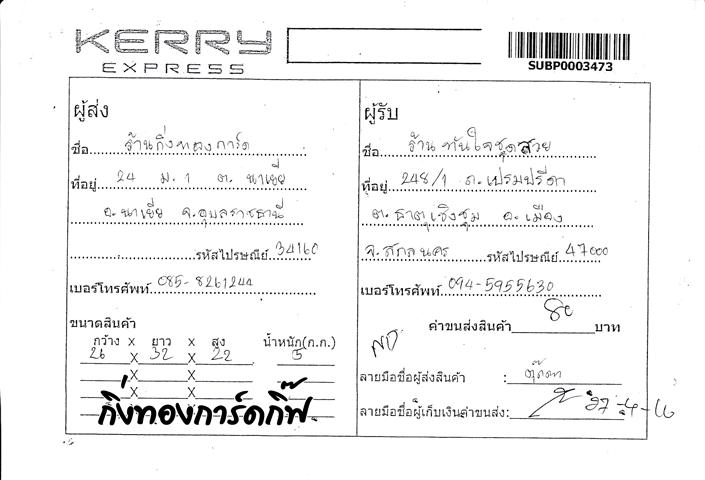 KERRY
EXPRESS
SUBP0003473
ผู้ส่ง
ชื่อ ร้านกิ่งทองการ์ด
ที่อยู่ 24 ม.1 ต. นาเยีย
อ.นาเยีย จ.อุบลราชธานี
รหัสไปรษณีย์ 34160
เบอร์โทรศัพท์ 085-8261244
ขนาดสินค้า
กว้าง x ยาว x สูง น้ำหนัก(ก.ก.)
26 X 32 X 22 5
X X
X X
กิ่งทองการ์ดกิ๊ฟ
ผู้รับ
ชื่อ ร้าน ทันใจชุดสวย
ที่อยู่ 248/1 ถ.เปรมปรีดา
ต. ธาตุเชิงชุม อ.เมือง
จ.สกลนคร รหัสไปรษณีย์ 47000
เบอร์โทรศัพท์ 094-5955630
ค่าขนส่งสินค้า 80 บาท
ND
ลายมือชื่อผู้ส่งสินค้า : ตุ๊กตา
ลายมือชื่อผู้เก็บเงินค่าขนส่ง: 27-4-16